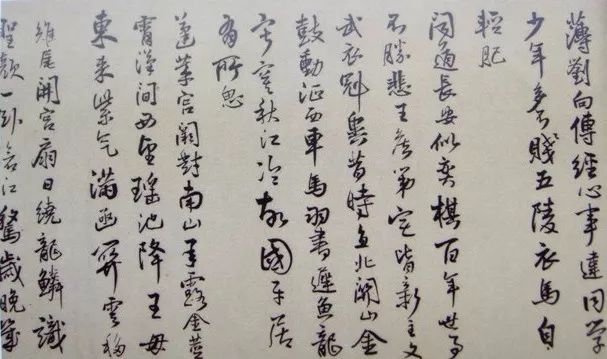 薄劉向傳經心事違同學
少年多不賤五陵衣馬自
輕肥
聞道長安似奕棋百年世事
不勝悲王侯第宅皆新主文
武衣冠異昔時直北關山金
鼓動征西車馬羽書遲魚龍
寂寞秋江冷故國平居
有所思
蓬莱宮闕對南山承露金莖
霄漢間西望瑶池降王母
東来紫气滿函關雲移
雉尾開宮扇日繞龍鱗識
聖顏一卧滄江驚歲晚幾